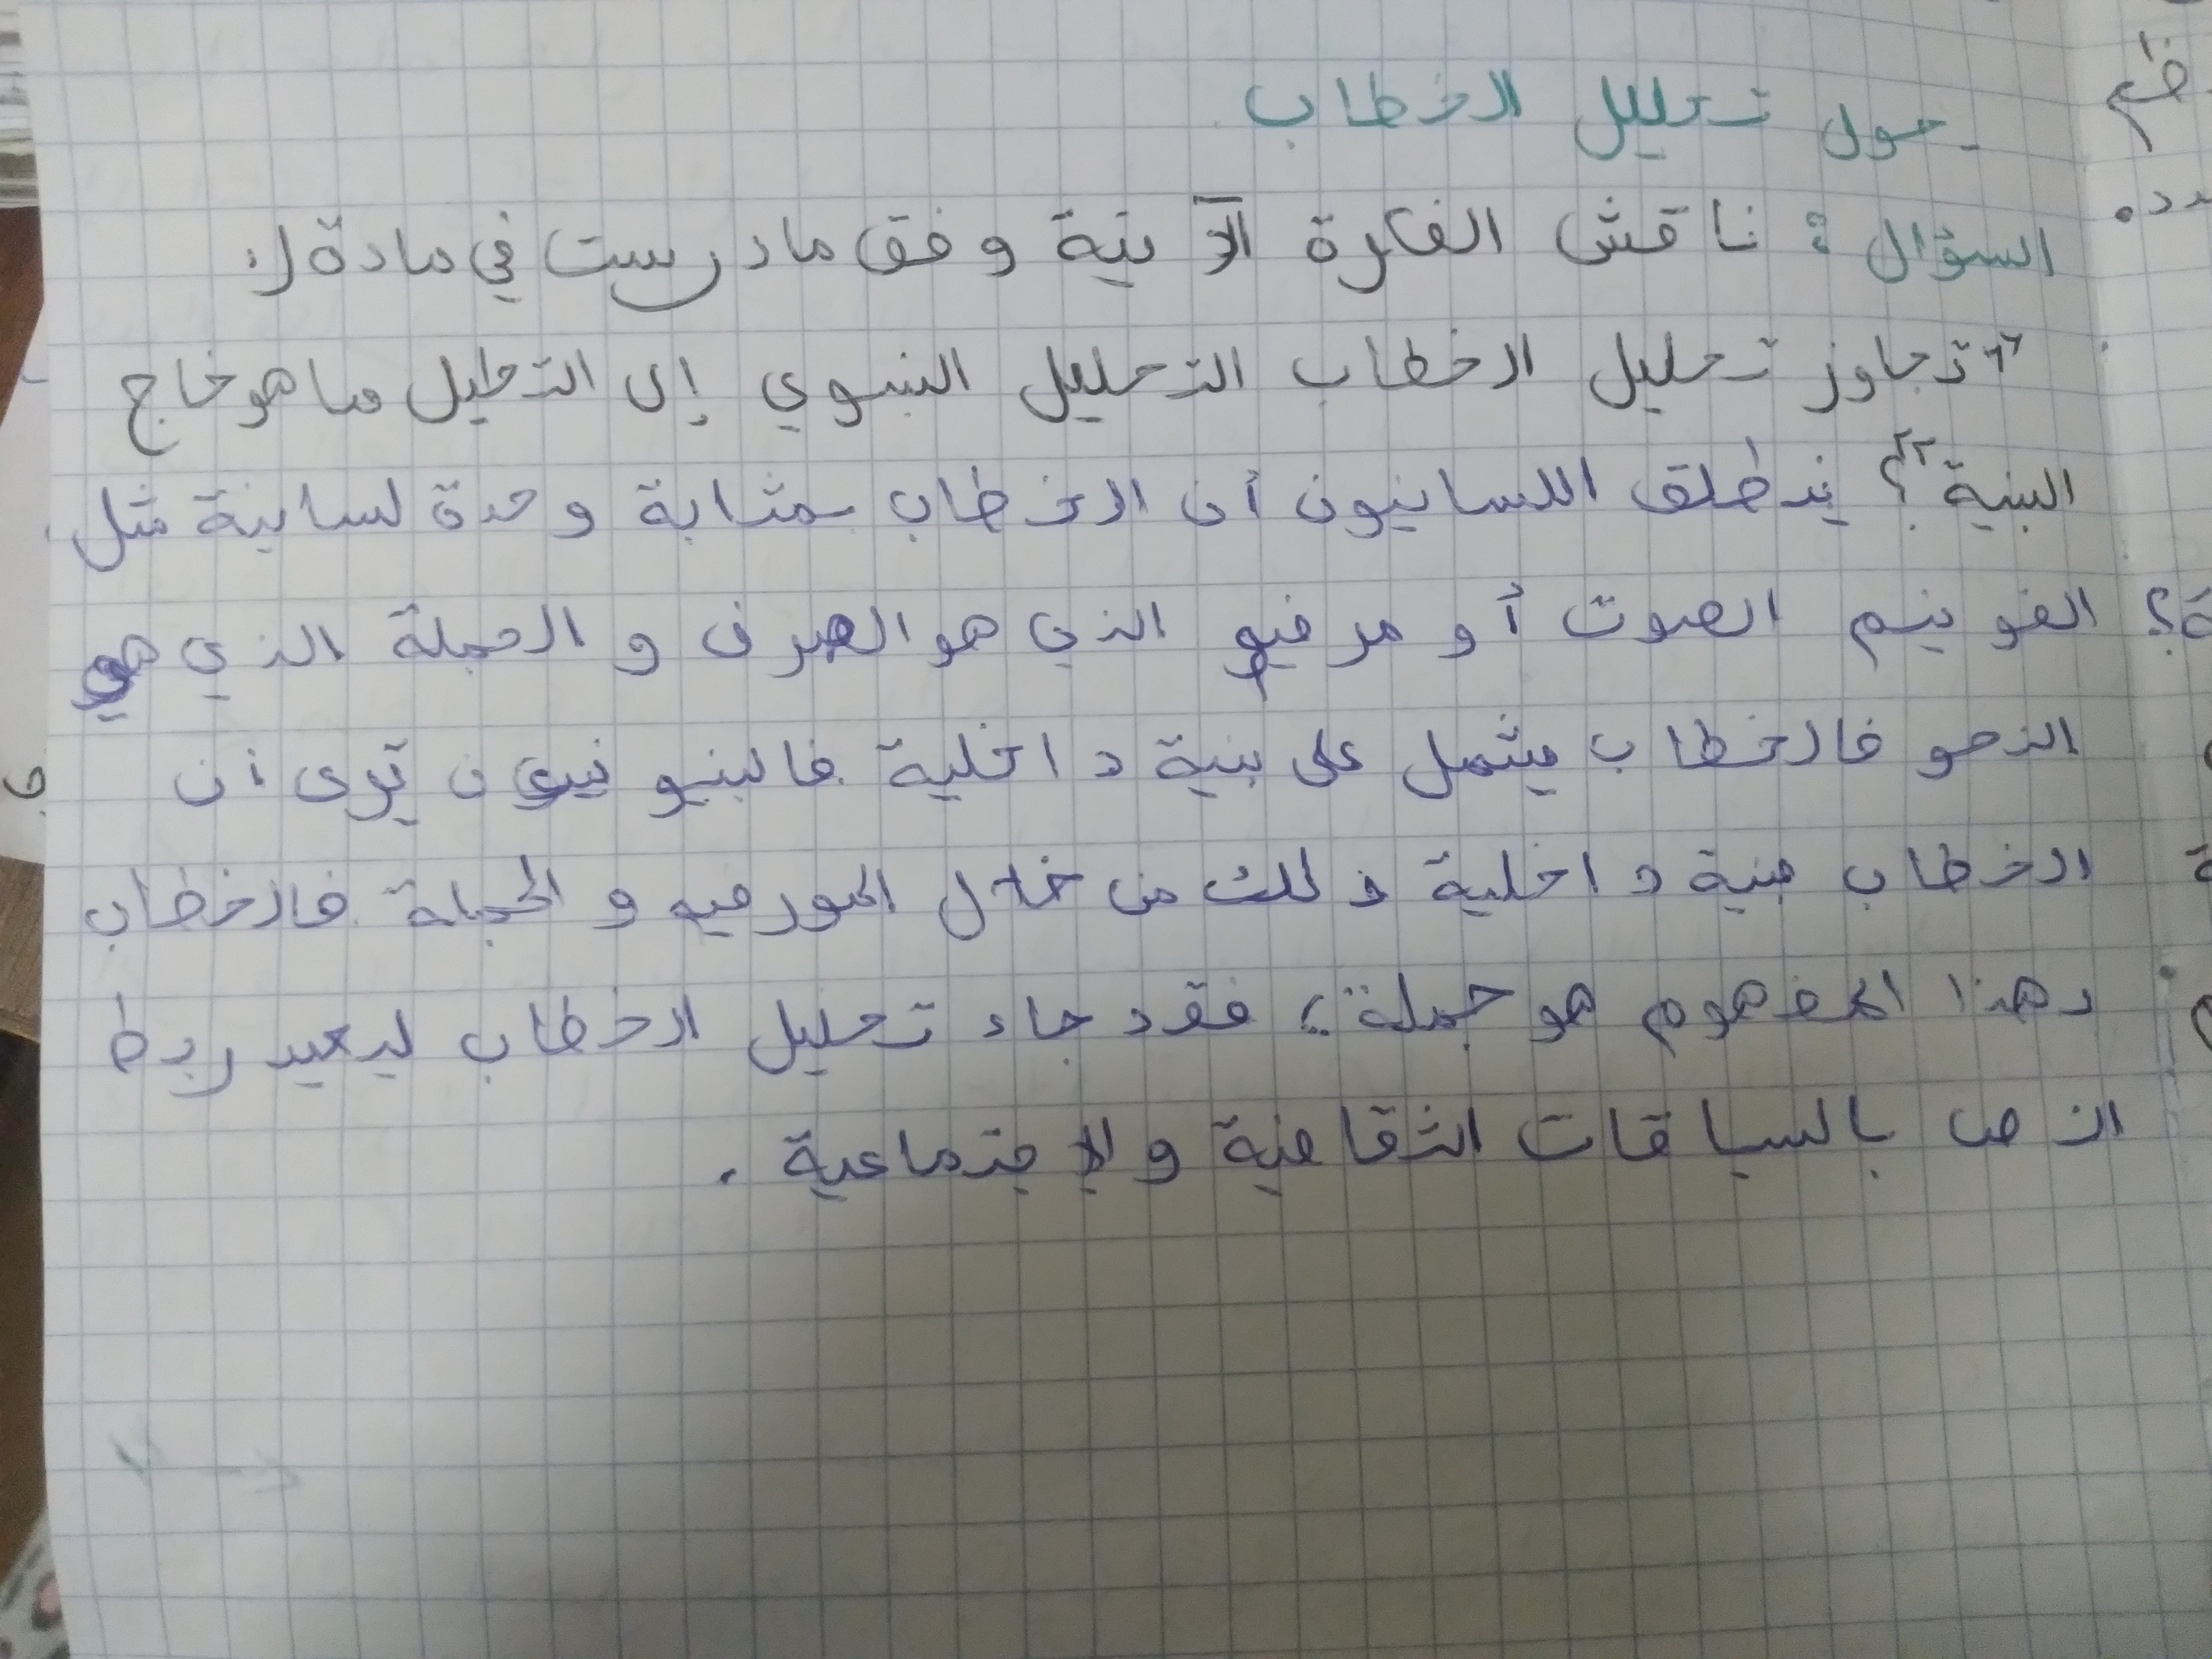 - حول تحليل الخطاب
السؤال : ناقش الفكرة الآتية وفق ما درست في مادة ل:
"تجاوز تحليل الخطاب التحليل البنيوي إلى التحليل ما هو خاج
البنية"؟ ينطلق اللسانيون أن الخطاب بمثابة وحدة لسانية مثل
الفونيم الصوت أو مرفيم الذي هو الصرف و الجملة الذي هي
النحو فالخطاب يشمل على بنية داخلية فالبنيو ن ترى أن
الخطاب بنية داخلية وذلك من خلال المورفيم و الجملة فالخطاب
بهذا المفهوم هو جملة؛ فقد جاء تحليل الخطاب ليعيد ربط
النص بالسياقات الثقافية والإجتماعية .